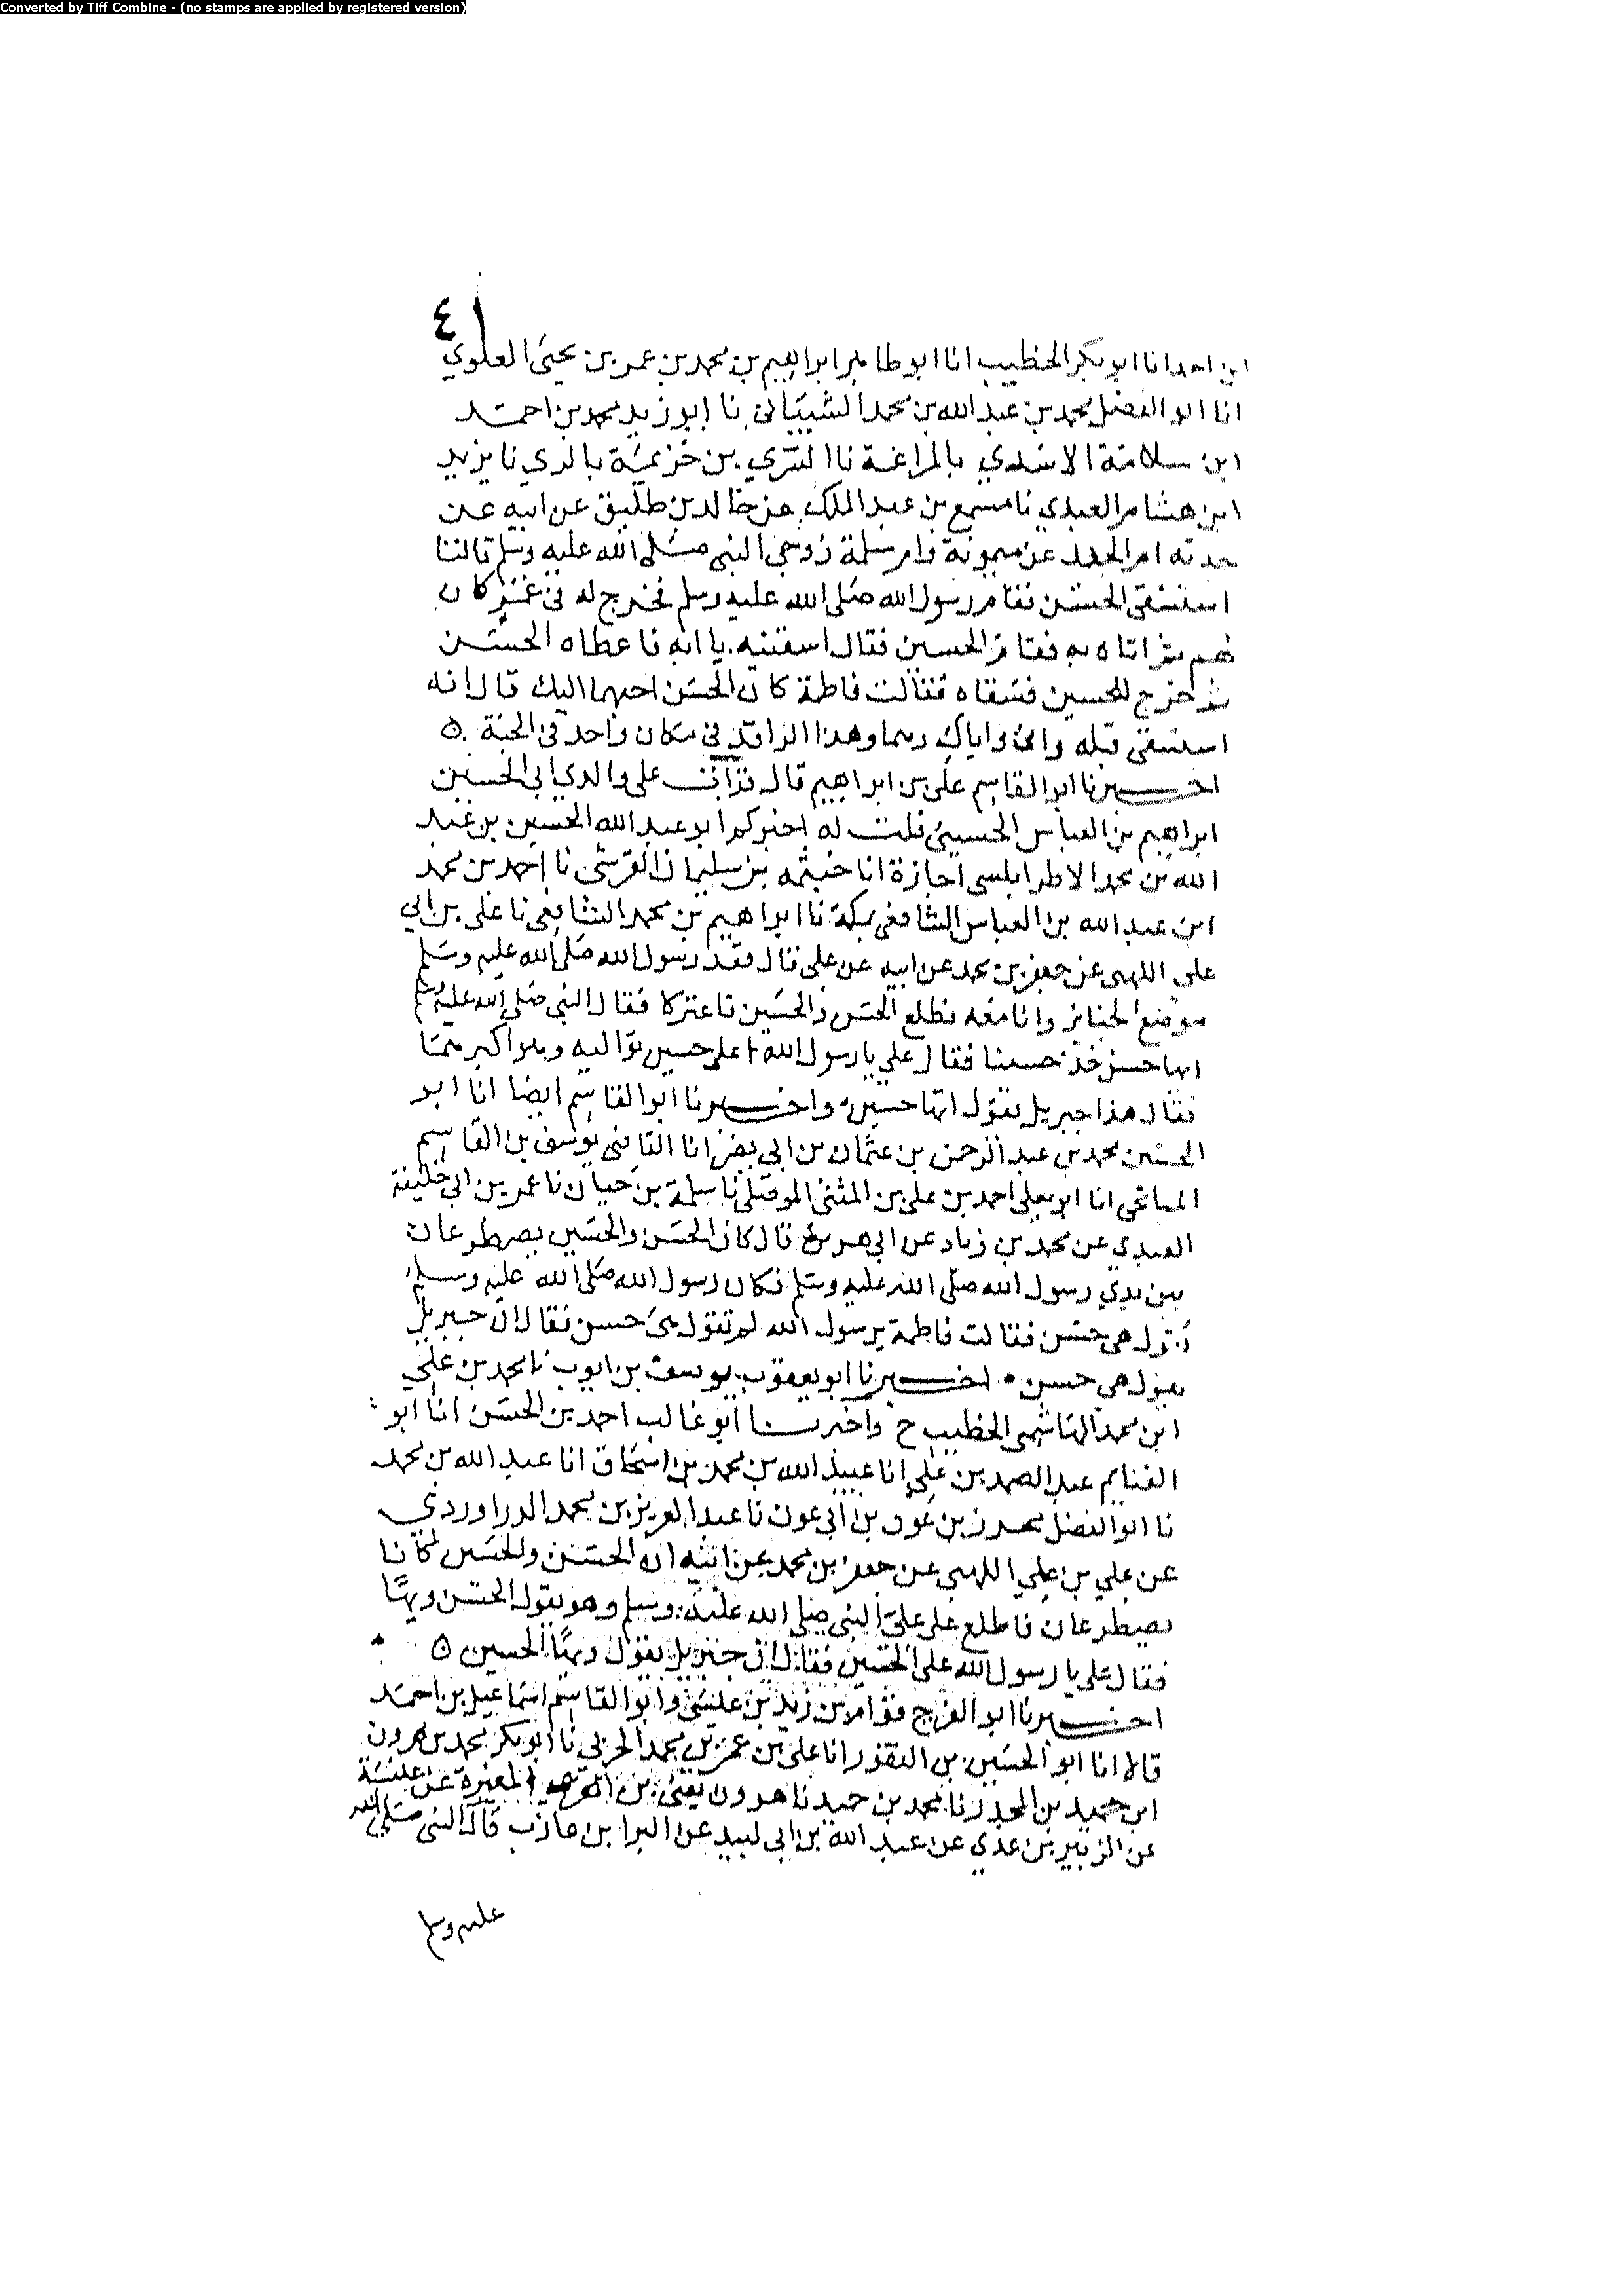 Converted by Tiff Combine - (no stamps are applied by registered version)
٤١
ابن احمد انا ابو بكر الخطيب انا ابو طاهر ابراهيم بن محمد بن عمر بن يحيى العلوي
انا ابو الفضل محمد بن عبد الله بن محمد الشيباني نا ابو زيد محمد بن احمد
ابن سلامة الاسدي بالمراغة نا السري بن خزيمة بالري نا يزيد
ابن هشام العبدي نا مسمع بن عبد الملك عن خالد بن طليق عن ابيه عن
جدته ام الجيد عن ميمونة وام سلمة زوجي النبي صلى الله عليه وسلم قالتا
استسقى الحسن فقام رسول الله صلى الله عليه وسلم فخرج له في غمر كان
لهم ثم اتاه به فقام الحسين فقال اسقنيه يا ابه فاعطاه الحسن
ثم خرج للحسين فسقاه فقالت فاطمة كان الحسن احبهما اليك قال انه
استسقى قبله واني واياك وهما وهذا الراقد في مكان واحد في الجنة ه
اخبرنا ابو القاسم علي بن ابراهيم قال قرات على والدي ابي الحسين
ابراهيم بن العباس الحسيني قلت له اخبركم ابو عبد الله الحسين بن عبد
الله بن محمد الاطرابلسي اجازة انا خيثمه بن سليمان القرشي نا احمد بن محمد
ابن عبد الله بن العباس الشافعي بمكة نا ابراهيم بن محمد الشافعي نا علي بن ابي
علي اللهبي عن جعفر بن محمد عن ابيه عن علي قال قعد رسول الله صلى الله عليه وسلم
موضع الجنايز وانا معه فطلع الحسن والحسين فاعتركا فقال النبي صلى الله عليه وسلم
ايها حسن خذ حسينا فقال علي يا رسول الله اعلى حسين تواليه وهو اكبرهما
فقال هذا جبريل يقول ايها حسين واخبرنا ابو القاسم ايضا انا ابو
الحسين محمد بن عبد الرحمن بن عثمان بن ابي نصر انا القاضي يوسف بن القاسم
الميانجي انا ابو يعلى احمد بن علي بن المثنى الموصلي نا سلمة بن حيان نا عمر بن ابي خليفة
العبدي عن محمد بن زياد عن ابي هريرة قال كان الحسن والحسين يصطرعان
بين يدي رسول الله صلى الله عليه وسلم فكان رسول الله صلى الله عليه وسلم
يقول هي حسن فقالت فاطمة يرسول الله لم تقول هي حسن فقال ان جبريل
يقول هي حسين • اخبرنا ابو يعقوب يوسف بن ايوب نا محمد بن علي
ابن محمد الهاشمي الخطيب ح واخبرنا ابو غالب احمد بن الحسن انا ابو
الغنايم عبد الصمد بن علي انا عبيد الله بن محمد بن اسحاق انا عبد الله بن محمد
نا ابو الفضل محرز بن عون بن ابي عون نا عبد العزيز بن محمد الدراوردي
عن علي بن علي اللهبي عن جعفر بن محمد عن ابيه ان الحسن والحسين كانا
يصطرعان فاطلع علي على النبي صلى الله عليه وسلم وهو يقول الحسن ويها
فقال علي يا رسول الله على الحسين فقال ان جبريل يقول ويها الحسين ه
اخبرنا ابو الفرج قوام بن زيد بن عيسى وابو القاسم اسماعيل بن احمد
قالا انا ابو الحسين بن النقور انا علي بن عمر بن محمد الحربي نا ابو بكر محمد بن هرون
ابن حميد بن المجدر نا محمد بن حميد نا هرون يعني بن المغيرة عن عنبسة
عن الزبير بن عدي عن عبد الله بن ابي لبيد عن البرا بن عازب قال النبي صلى الله
عليه وسلم